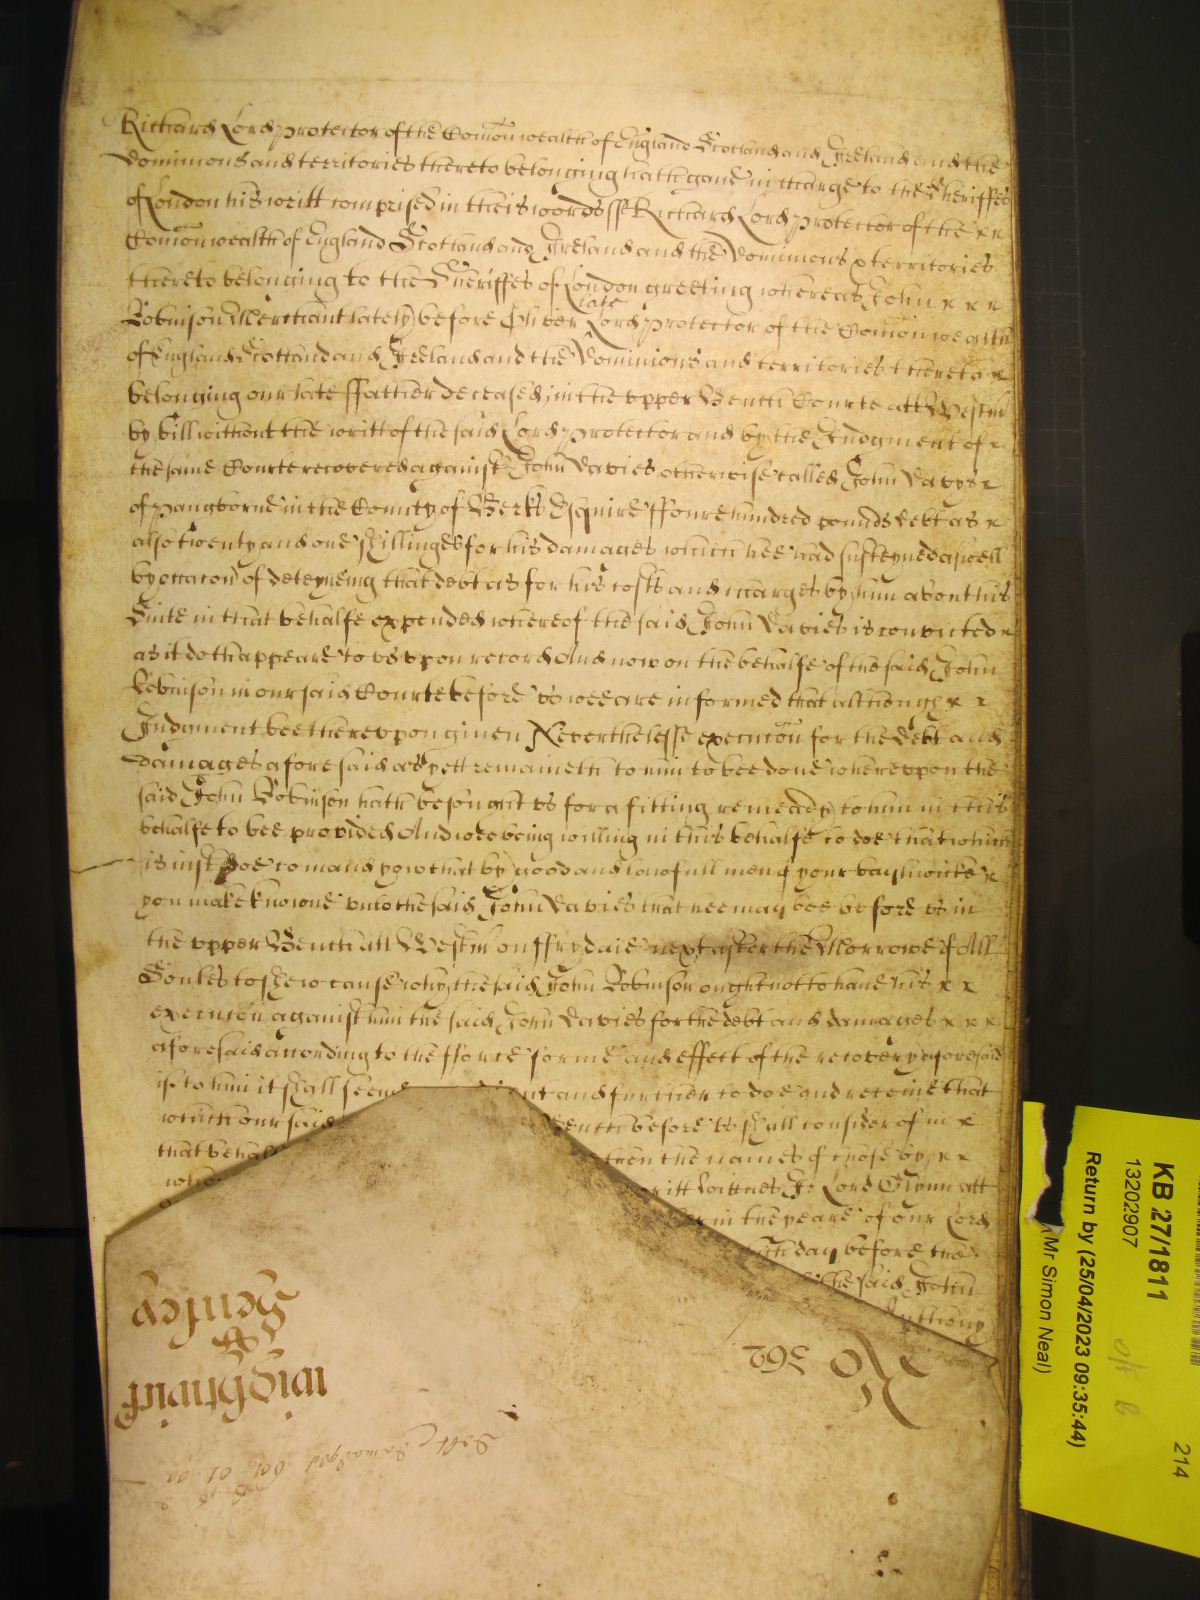 Richard Lord Protector of the Com̃onwealth of England Scotland and Ireland and the
Dominions and territories thereto belonging hath gave in charge to the Sheriffes
of London his writt comprised in theis words ss Richard Lord Protector of the x x
Com̃onwealth of England Scotland and Ireland and the Dominions & territories
thereto belonging to the Sheriffes of London greeting whereas John x x x
late
Robinson Merchant lately before Oliver Lord Protector of the Com̃onwealth
of England Scotland and Ireland and the Dominions and territories thereto x
belonging our late ffather deceased in the vpper Bench Courte att Westm̃
by bill without the writt of the said Lord Protector and by the Judgment of x
the same Courte recovered against John Davies otherwise called John Davys x
of Pangborne in the County of Berks Esquire ffoure hundred pounds debt as x
also twenty and one shillinges for his damages which hee had susteyned aswell
by occac̃on of deteyneing that debt as for his costs and charges by him about his
Suite in that behalfe expended whereof the said John Davies is convicted x
as it doth appeare to vs vpon record And now on the behalfe of the said John
Robinson in our said Courte before vs wee are informed that although x x
Judgment bee therevpon given Neverthelesse execuc̃on for the debt and
damages aforesaid as yett remaineth to him to bee done wherevpon the
said John Robinson hath besought vs for a fitting remeady to him in this
behalfe to bee provided And wee being willing in this behalfe to doe that which
is just doe com̃and yow that by good and lawfull men of your bayliwicke x
you make knowne vnto the said John Davies that hee may bee before vs in
the vpper Bench att Westm̃ on ffrydaie next after the Morrowe of All
Soules to shew cause why the said John Robinson ought not to have his x x
execuc̃on against him the said John Davies for the debt and damages x x x
aforesaid according to the fforce forme and effect of the recovery aforesaid
if to him it shall seeme and further to doe and receive that
which our said Bench before vs shall consider of in x
that behalf then the names of those by x x
writt Wittnes J: Lord Glynn att
in the yeare of our Lord
day before the
the said John
Anthony
No 362
Wightwick
&
Henley
Debt & damages
KB 27/1811
13202907
Return by (25/04/2023 09:35:44)
Mr Simon Neal)
214